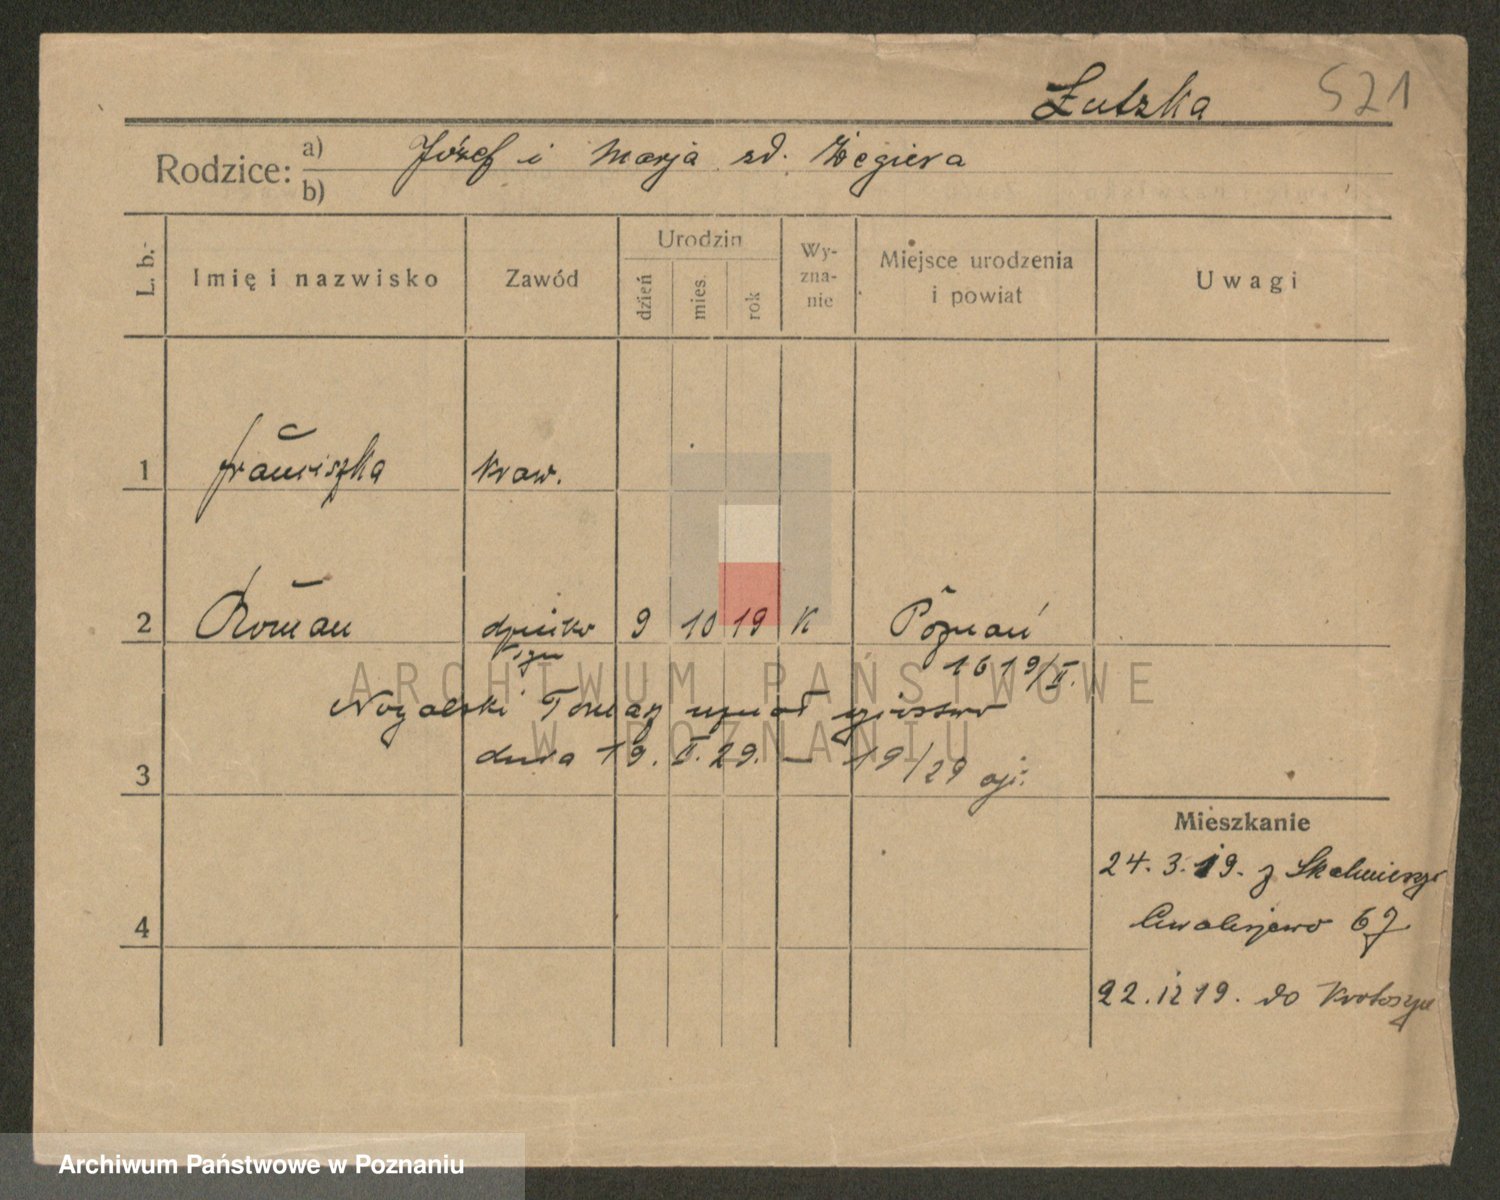 Łutzka 521
Rodzice: a) Józef i Marja zd. Żegiera
b)
L. b. Imię i nazwisko Zawód Urodzin dzień mies. rok Wy-zna-nie Miejsce urodzenia i powiat Uwagi
1 Franciszka Kraw.
2 Roman dziecko 9 10 19 K Poznań
1619/II.
Nogalski Tomasz uznał ojcostwo
3 dnia 19. II. 29. — 19/29 oji.
Mieszkanie
24. 3. 19. z Skalmierzyc
4 Chwaliszewo 67
22. 12 19. do Krotoszyn
ARCHIWUM PAŃSTWOWE
W POZNANIU
Archiwum Państwowe w Poznaniu